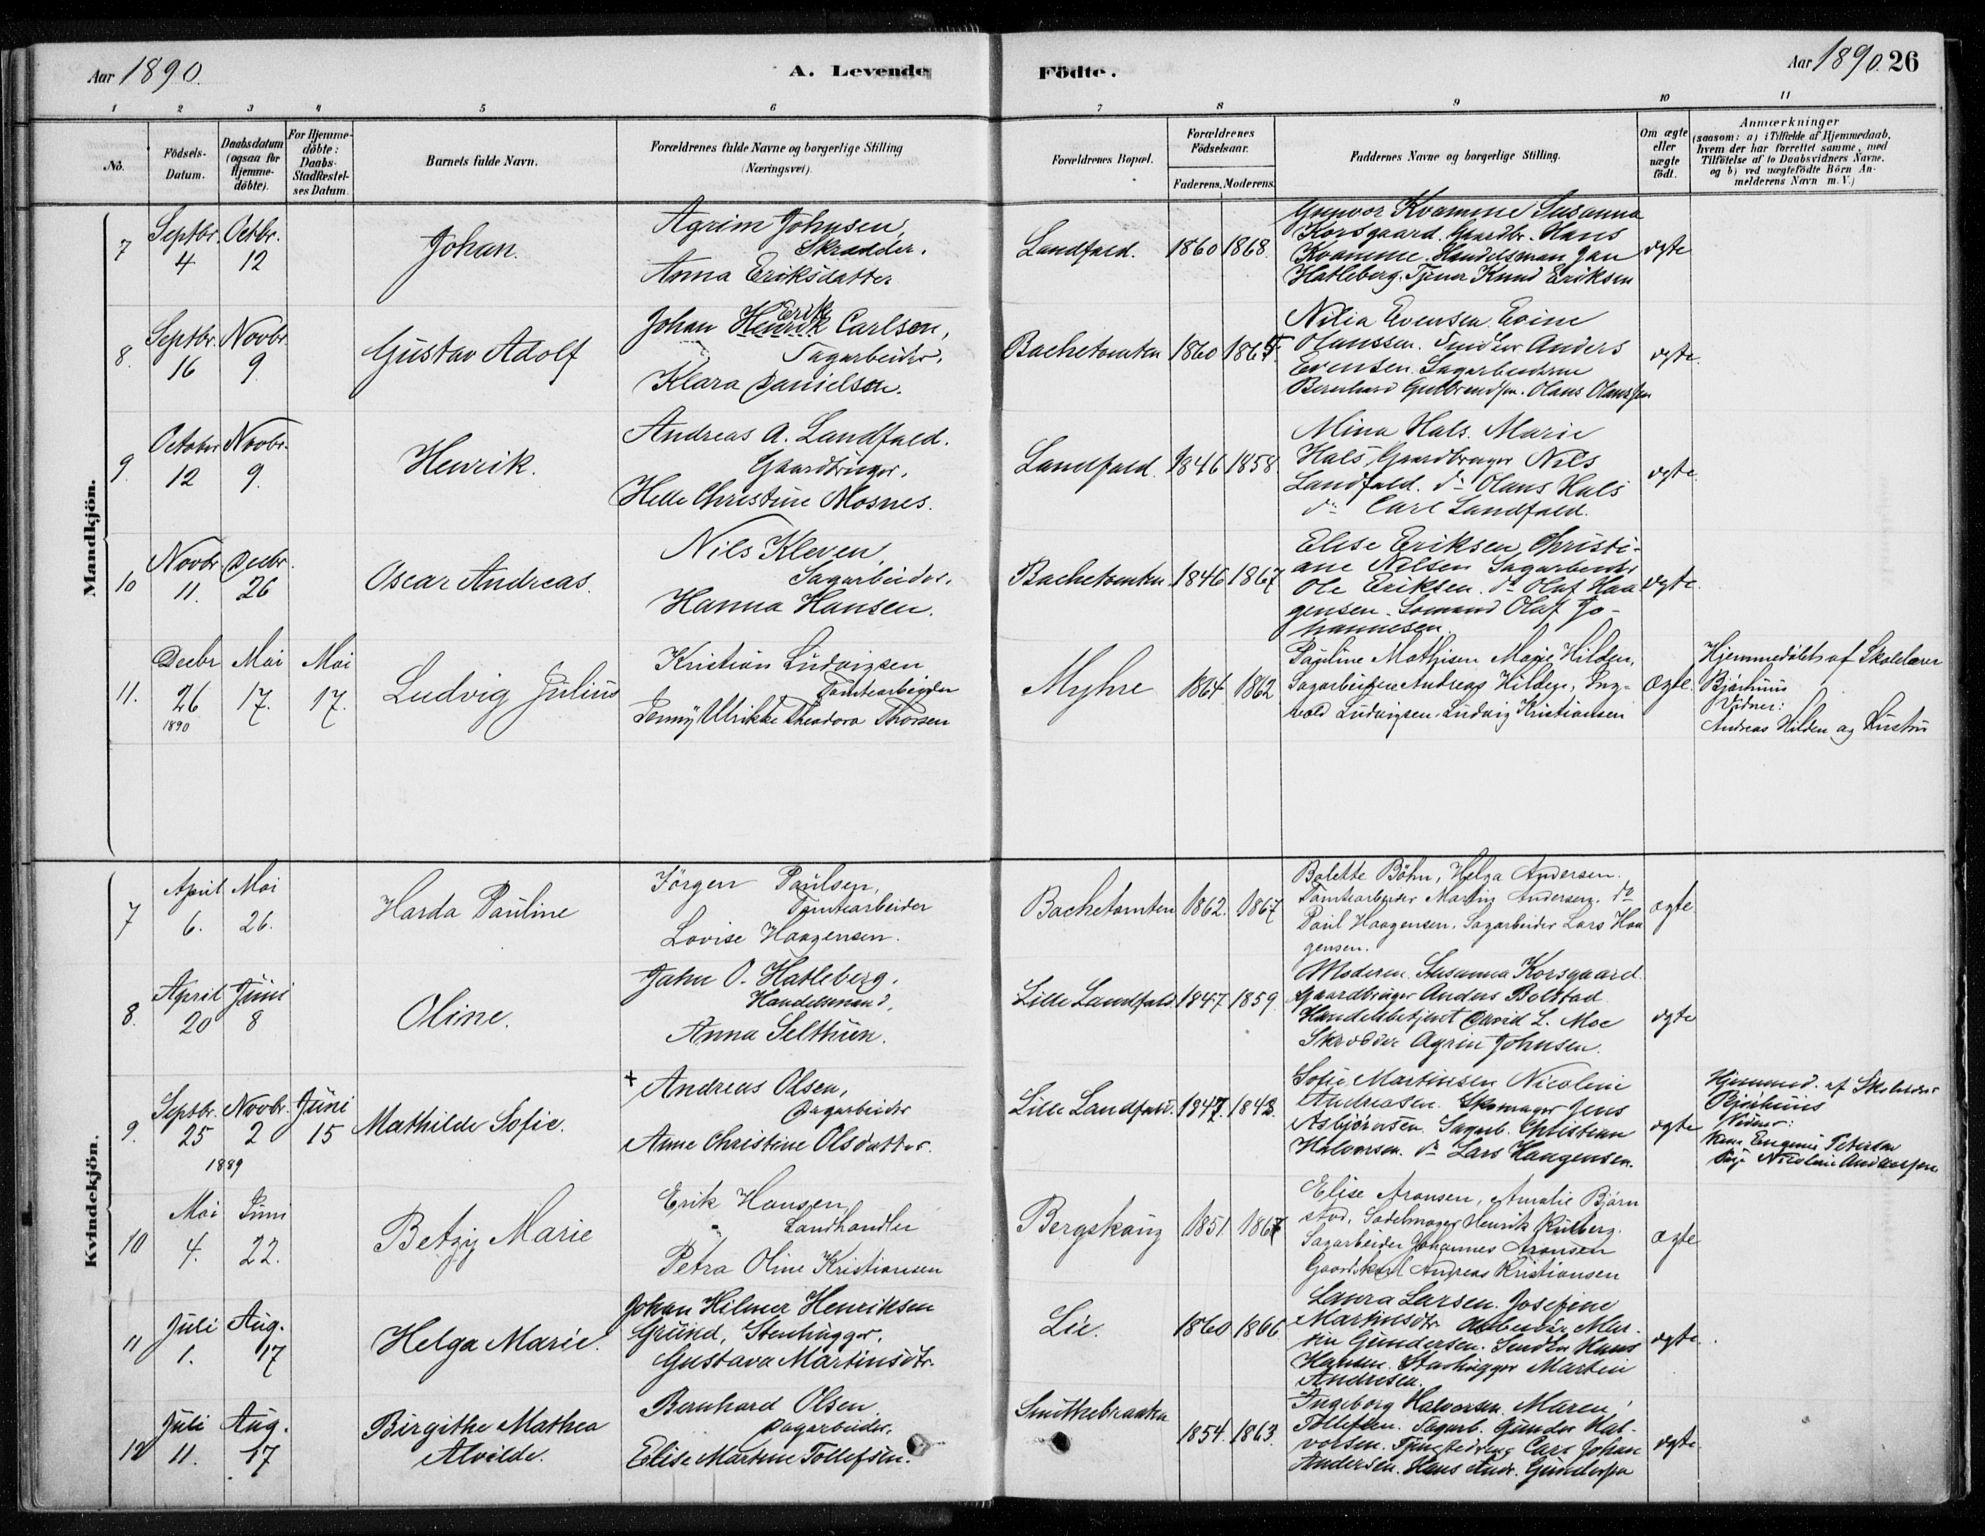 Aar 1890.
A. Levende Födte.
Aar 1890. 26
1 2 3 4 5 6 7 8 9 10 11
No.
Födsels-Datum.
Daabsdatum (ogsaa for Hjemme-döbte).
For Hjemme-döbte: Daabs-Stadfæstel-ses Datum.
Barnets fulde Navn.
Forældrenes fulde Navne og borgerlige Stilling (Næringsvei).
Forældrenes Bopæl.
Forældrenes Födselsaar.
Faderens. Moderens.
Faddernes Navne og borgerlige Stilling.
Om ægte eller uægte födt.
Anmærkninger
(saasom: a) i Tilfælde af Hjemmedaab,
hvem der har forrettet samme, med
Tilföielse af to Daabsvidners Navne.
og b) ved uægtefödte Börn An-
melderens Navn m. V.)
Mandkjön.
7 Septbr. 4 Octbr. 12
Johan.
Agrim Johnsen,
Skrædder.
Anna Eriksdatter
Landfald. 1860 1868
Gunvor Kvamme Susanna
Korsgaard. Gaardbr. Hans
Kvamme. Handelsman Jan
Hatleberg. Tjener Knud Eriksen
ægte
8. Septbr. 16 Novbr. 9
Gustav Adolf
Erik
Johan Henrik Carlsen,
Sagarbeider,
Klara Danielsen.
Bachetomten 1860 1865
Nilia Evensen Evine
Olanssen. Anders
Evensen. Sagarbeiderne
Bernhard Gulbrandsen. Olaus Olaussen
ægte.
9. October 12 Novbr. 9.
Henrik.
Andreas A. Landfald.
Gaardbruger,
Helle Christine Mosnes.
Landfald. 1846 1858
Mina Hals. Marie
Hals, Gaardbruger Nils
Landfald. do Olaus Hals
do Carl Landfald.
ægte.
10 Novbr 11. Decbr. 26
Oscar Andreas.
Nils Kleven,
Sagarbeider,
Hanna Hansen.
Bachetomten 1846 1867
Elise Eriksen Christi-
ane Nilsen Sagarbeider
Ole Eriksen. do Olaf Haa
gensen. Sømand Olaf Jo-
hannesen
ægte.
11. Decbr 26 1890 Mai 17. Mai 17.
Ludvig Julius
Kristian Ludvigsen
Tomtearbeider
Jenny Ulrikke Theodora Thorsen
Myhre 1864 1862
Pauline Mathisen Marie Hilden,
Sagarbeider Andreas Hilden, Ing-
vald Ludvigsen, Ludvig Kristiansen
Ægte.
Hjemmedøbt af Skolelærer
Bjørhuus
Vidner:
Andreas Hilden og Hustru
Kvindekjön.
7 April 6. Mai 26.
Harda Pauline
Jörgen Paulsen,
Tomtearbeider
Lovise Haagensen.
Bachetomten 1862. 1867
Bolette Böhn, Helga Andersen.
Tomtearbeider Martin Andersen. do
Paul Haagensen, Sagarbeider Lars Haa
gensen.
ægte
8. April 20 Juni 8
Oline.
Jahn O. Hatleberg,
Handelsmand,
Anna Selthun.
Lille Landfald 1847 1859
Moderen. Susanna Korsgaard.
Gaardbruger Anders Bolstad
Handelsbetjent David L. Moe
Skrædder Agrim Johnsen.
ægte
9. Septbr. 25 1889 Novbr. 2 Juni 15
Mathilde Sofie.
+ Andreas Olsen,
Dagarbeider
Anne Christine Olsdatter.
Lille Landfald. 1847. 1843
Sofie Martinsen Nicoline
Andreasen. Skomager Jens
Asbjörnsen. Sagarb. Christian
Halvorsen. do Lars Haagensen.
ægte
Hjemmed. af Skolelærer
Bjørhuus
Vidner:
Eugenie Petersen
Nicoline Andersen
10 Mai 4. Juni 22.
Betzy Marie
Erik Hansen
Landhandler
Petra Oline Kristiansen
Bergskaug 1851 1867
Elise Aronsen, Amalie Bjørn
stad, Sadelmager Henrik Kulberg.
Sagarbeider Johannes Aronsen
Gaardskarl Andreas Kristiansen
Ægte
11 Juli 1. Aug. 17
Helga Marie.
Johan Hilmer Henriksen
Gründ, Stenhugger,
Gustava Martinsdtr.
Lie. 1860 1866
Laura Larsen. Josefine
Martinsdtr Arbeider Mar-
tin Gundersen. Hans
Hansen. Stenhugger Martin
Andresen.
ægte.
12 Juli 11. Aug. 17
Birgithe Mathea
Alvilde.
Bernhard Olsen
Dagarbeider,
Elise Martine Tollefsen.
Smithebraaten 1854. 1863.
Ingeborg Halvorsen. Maren
Tollefsen. Sagarb. Gunder Hal-
vorsen. Carl Johan
Andersen. Hans Andr. Gundersen
ægte